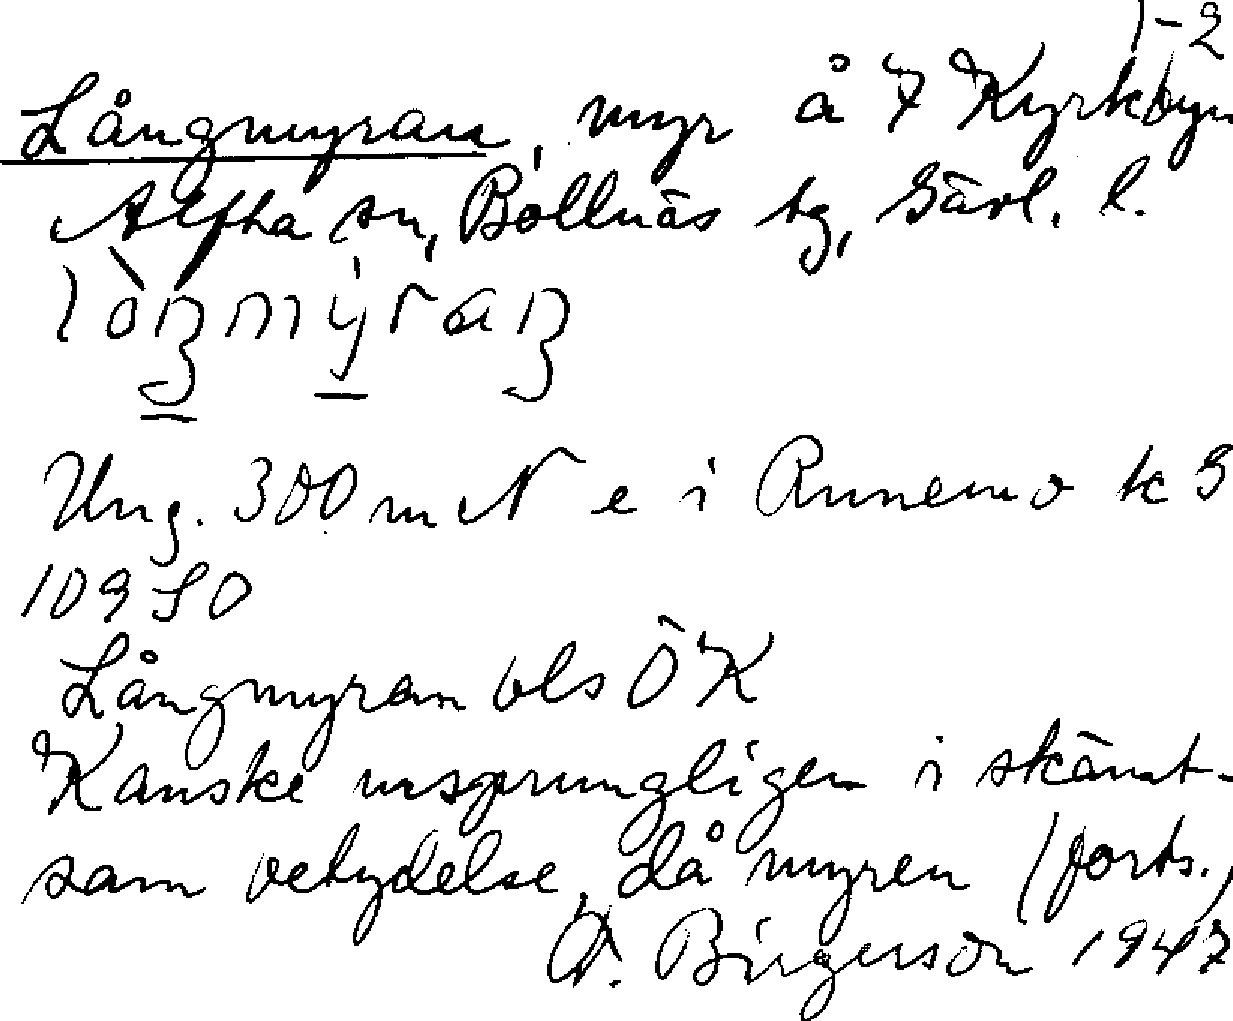 1-2
Långmyran, myr å 7 Kyrkbyn
Alfta sn, Bollnäs tg, Gävl. l.
Ung. 300 m N e i Runemo k 9
Långmyran bls ÖK
Kanske ursprungligen i skämt-
sam betydelse, då myren (forts.)
Birgerson 1947